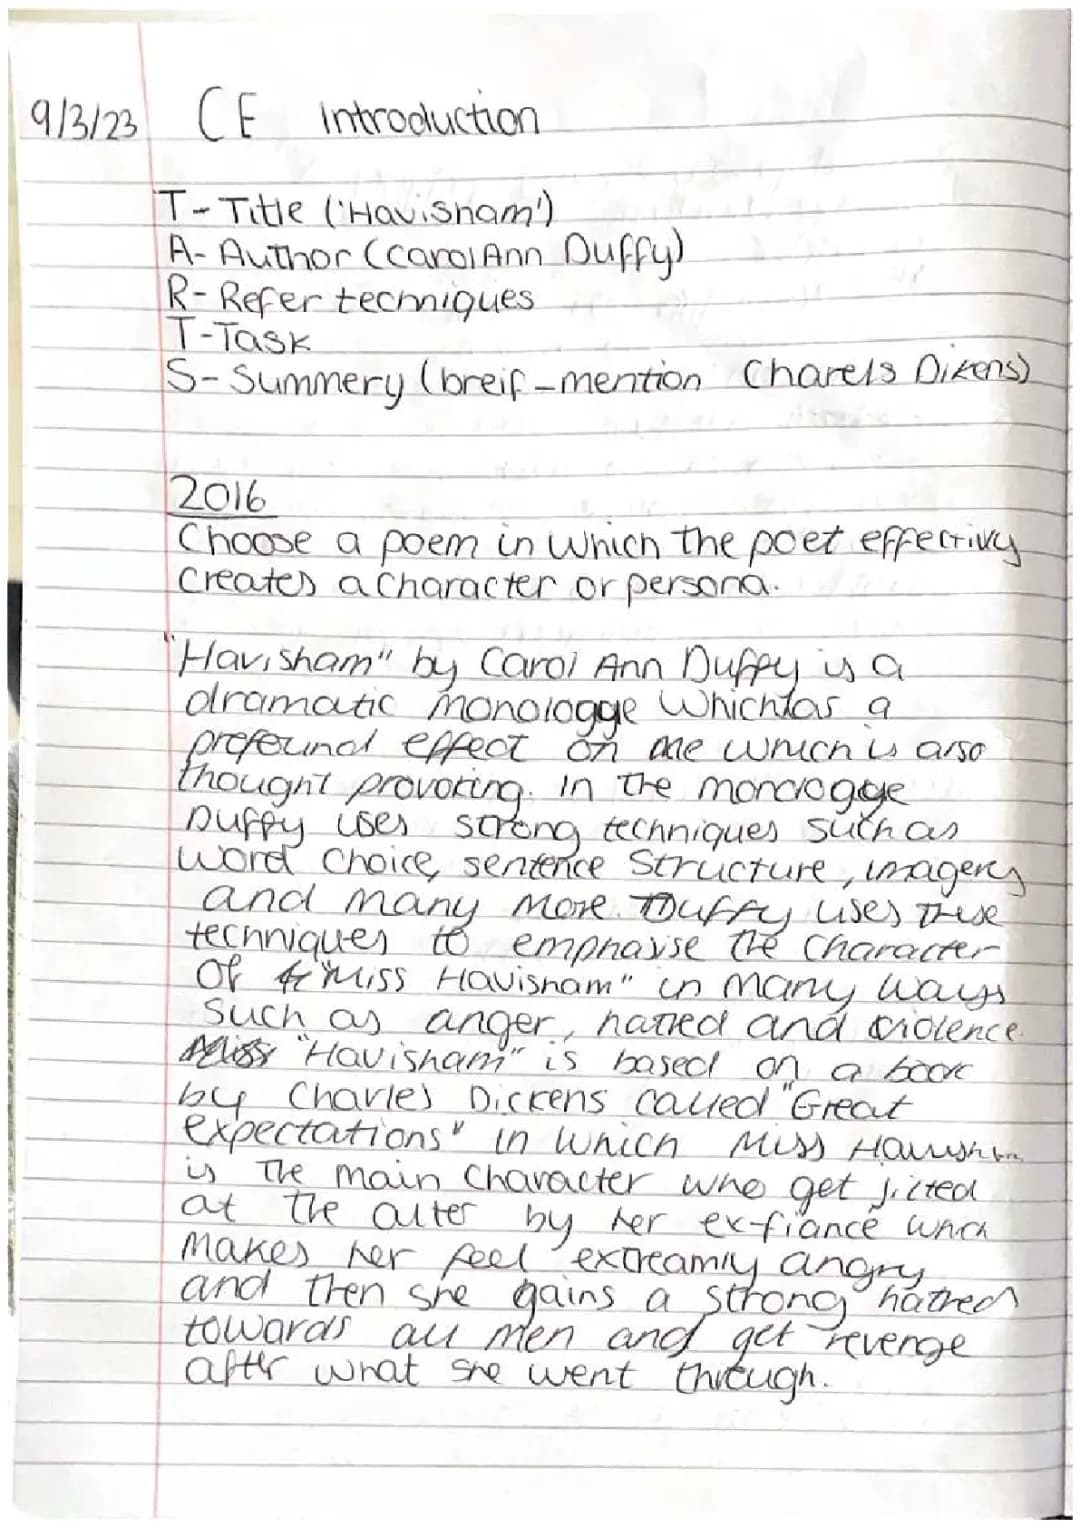 9/3/23 CE Introduction
T- Title ('Havisham')
A- Author (Carol Ann Duffy)
R- Refer techniques
T-Task
S- Summery (breif-mention Charels Dikens)
2016
Choose a poem in which the poet effectivy
creates a character or persona.
"Havisham" by Carol Ann Duffy is a
dramatic monologge which has a
profound effect on me which is also
thought provoking. In the monologge
Duffy uses strong techniques such as
word choice, sentence structure, imagery
and many more. Duffy uses these
techniques to emphasise the character
of "Miss Havisham" in many ways
such as anger, hatred and violence.
"Havisham" is based on a book
by Charles Dickens called "Great
expectations" in which Miss Havisham
is the main character who get jilted
at the alter by her ex-fiancé which
makes her feel extreamly angry
and then she gains a strong hatred
towards all men and get revenge
after what she went through.